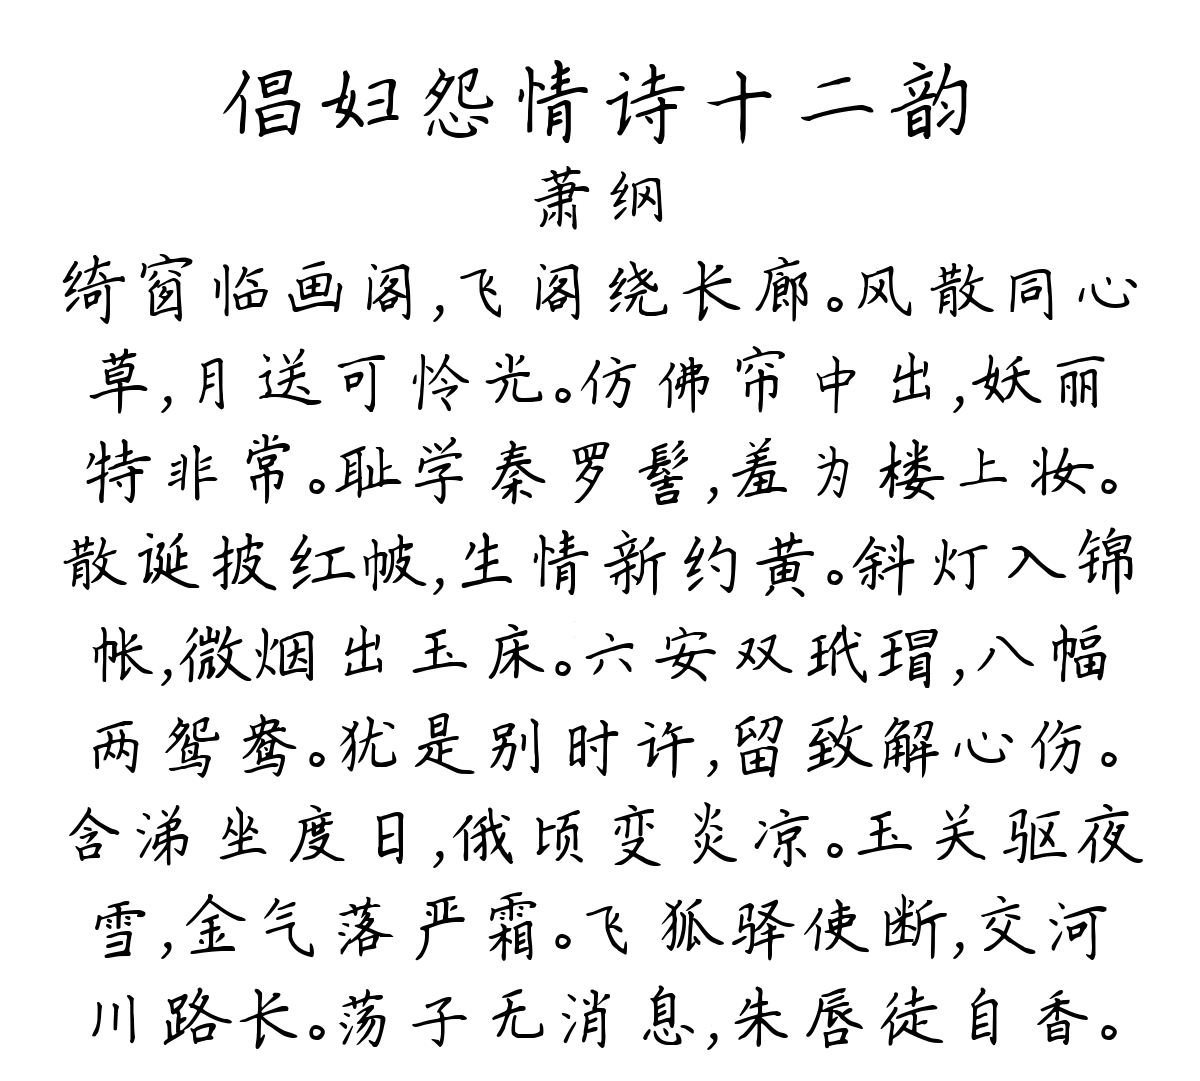 倡妇怨情诗十二韵
萧纲
绮窗临画阁,飞阁绕长廊。风散同心
草,月送可怜光。仿佛帘中出,妖丽
特非常。耻学秦罗髻,羞为楼上妆。
散诞披红帔,生情新约黄。斜灯入锦
帐,微烟出玉床。六安双玳瑁,八幅
两鸳鸯。犹是别时许,留致解心伤。
含涕坐度日,俄顷变炎凉。玉关驱夜
雪,金气落严霜。飞狐驿使断,交河
川路长。荡子无消息,朱唇徒自香。